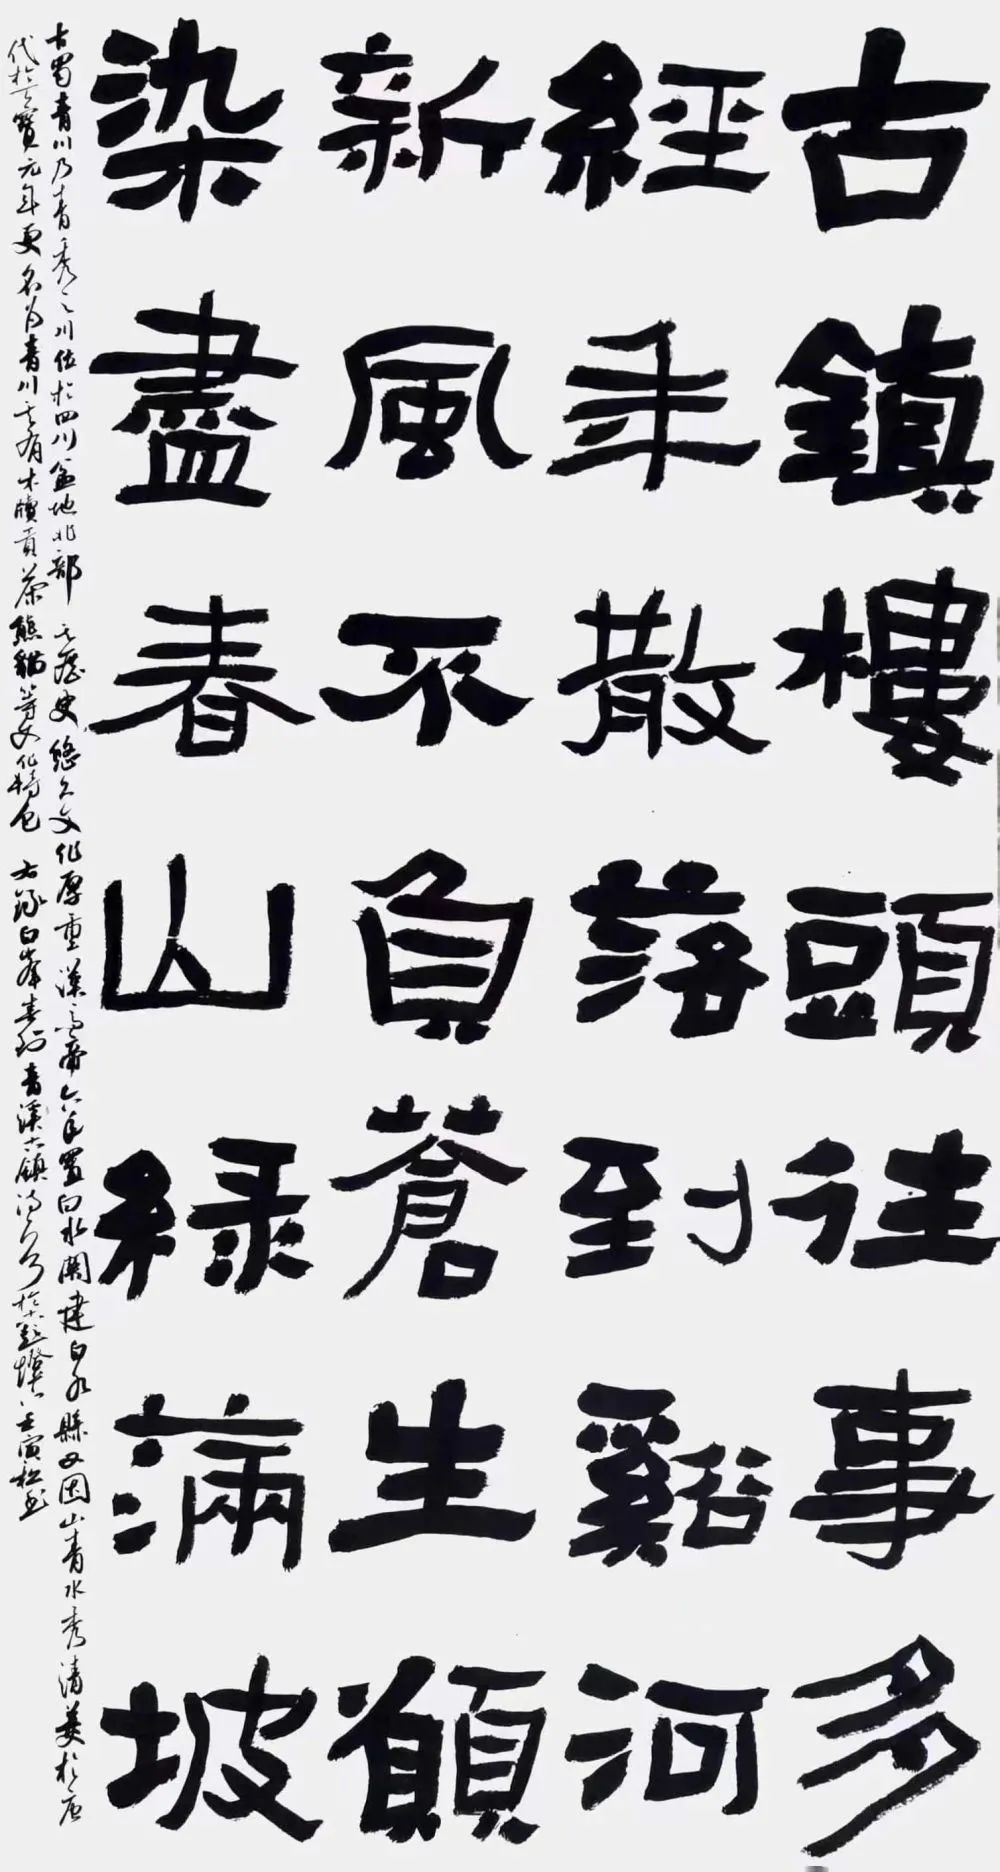 古鎮樓頭往事多
經年散落到谿河
新風不負蒼生願
染盡春山綠滿坡
古蜀青川乃青秀之川位於四川盆地北部其歷史悠久文化厚重漢高帝六年置白水關建白水縣又因山青水秀清美於唐
代於天寶元年更名為青川其有木牘貢茶熊貓等文化特色右錄白峯春行青溪古鎮詩於燈下壬寅松書